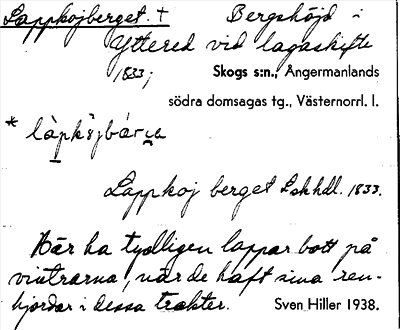 Lappkojberget. † Bergshöjd i
Yttered vid lagaskifte
1833; Skogs s:n., Ångermanlands
södra domsagas tg., Västernorrl. l.
* làpkåjbár
Lappkoj berget Lskhdl. 1833.
Här ha tydligen lappar bott på
vintrarna, när de haft sina ren-
hjordar i dessa trakter. Sven Hiller 1938.